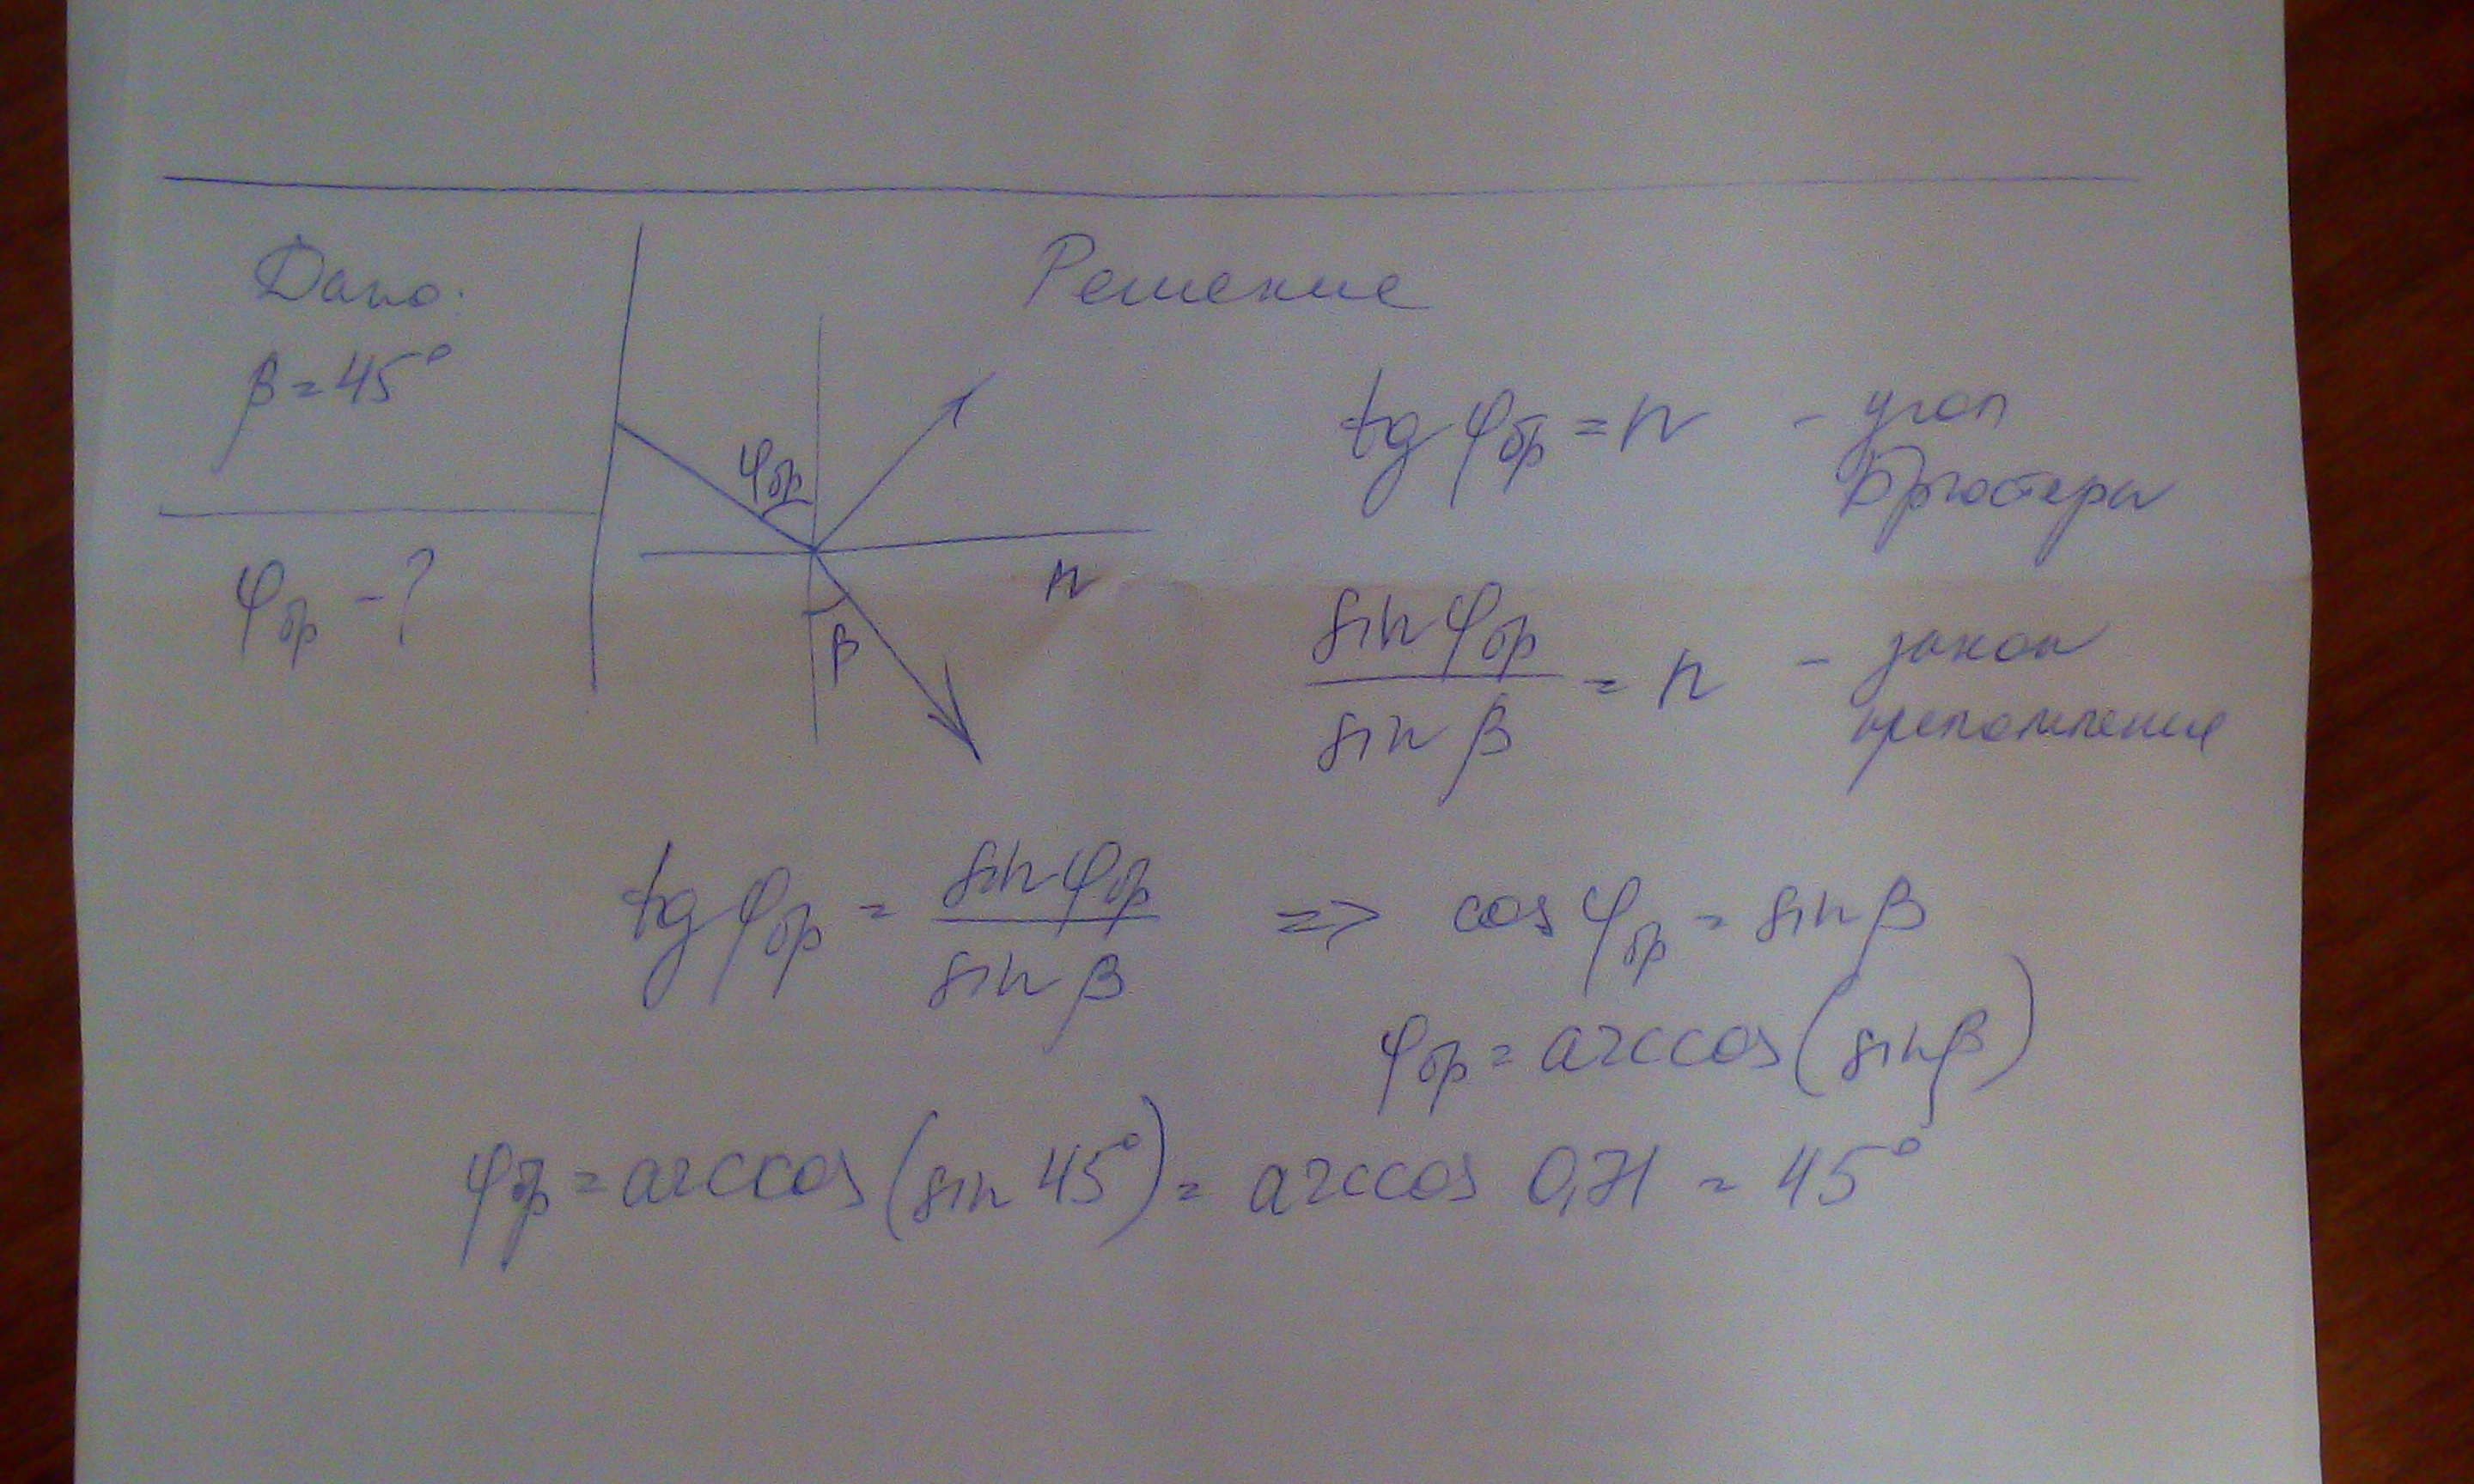 Дано:
β = 45°
φбр - ?
Решение
φбр
β
n
tg φбр = n - угол
Брюстера
sin φбр / sin β = n - закон
преломления
tg φбр = sin φбр / sin β => cos φбр = sin β
φбр = arccos (sin β)
φбр = arccos (sin 45°) = arccos 0,71 = 45°